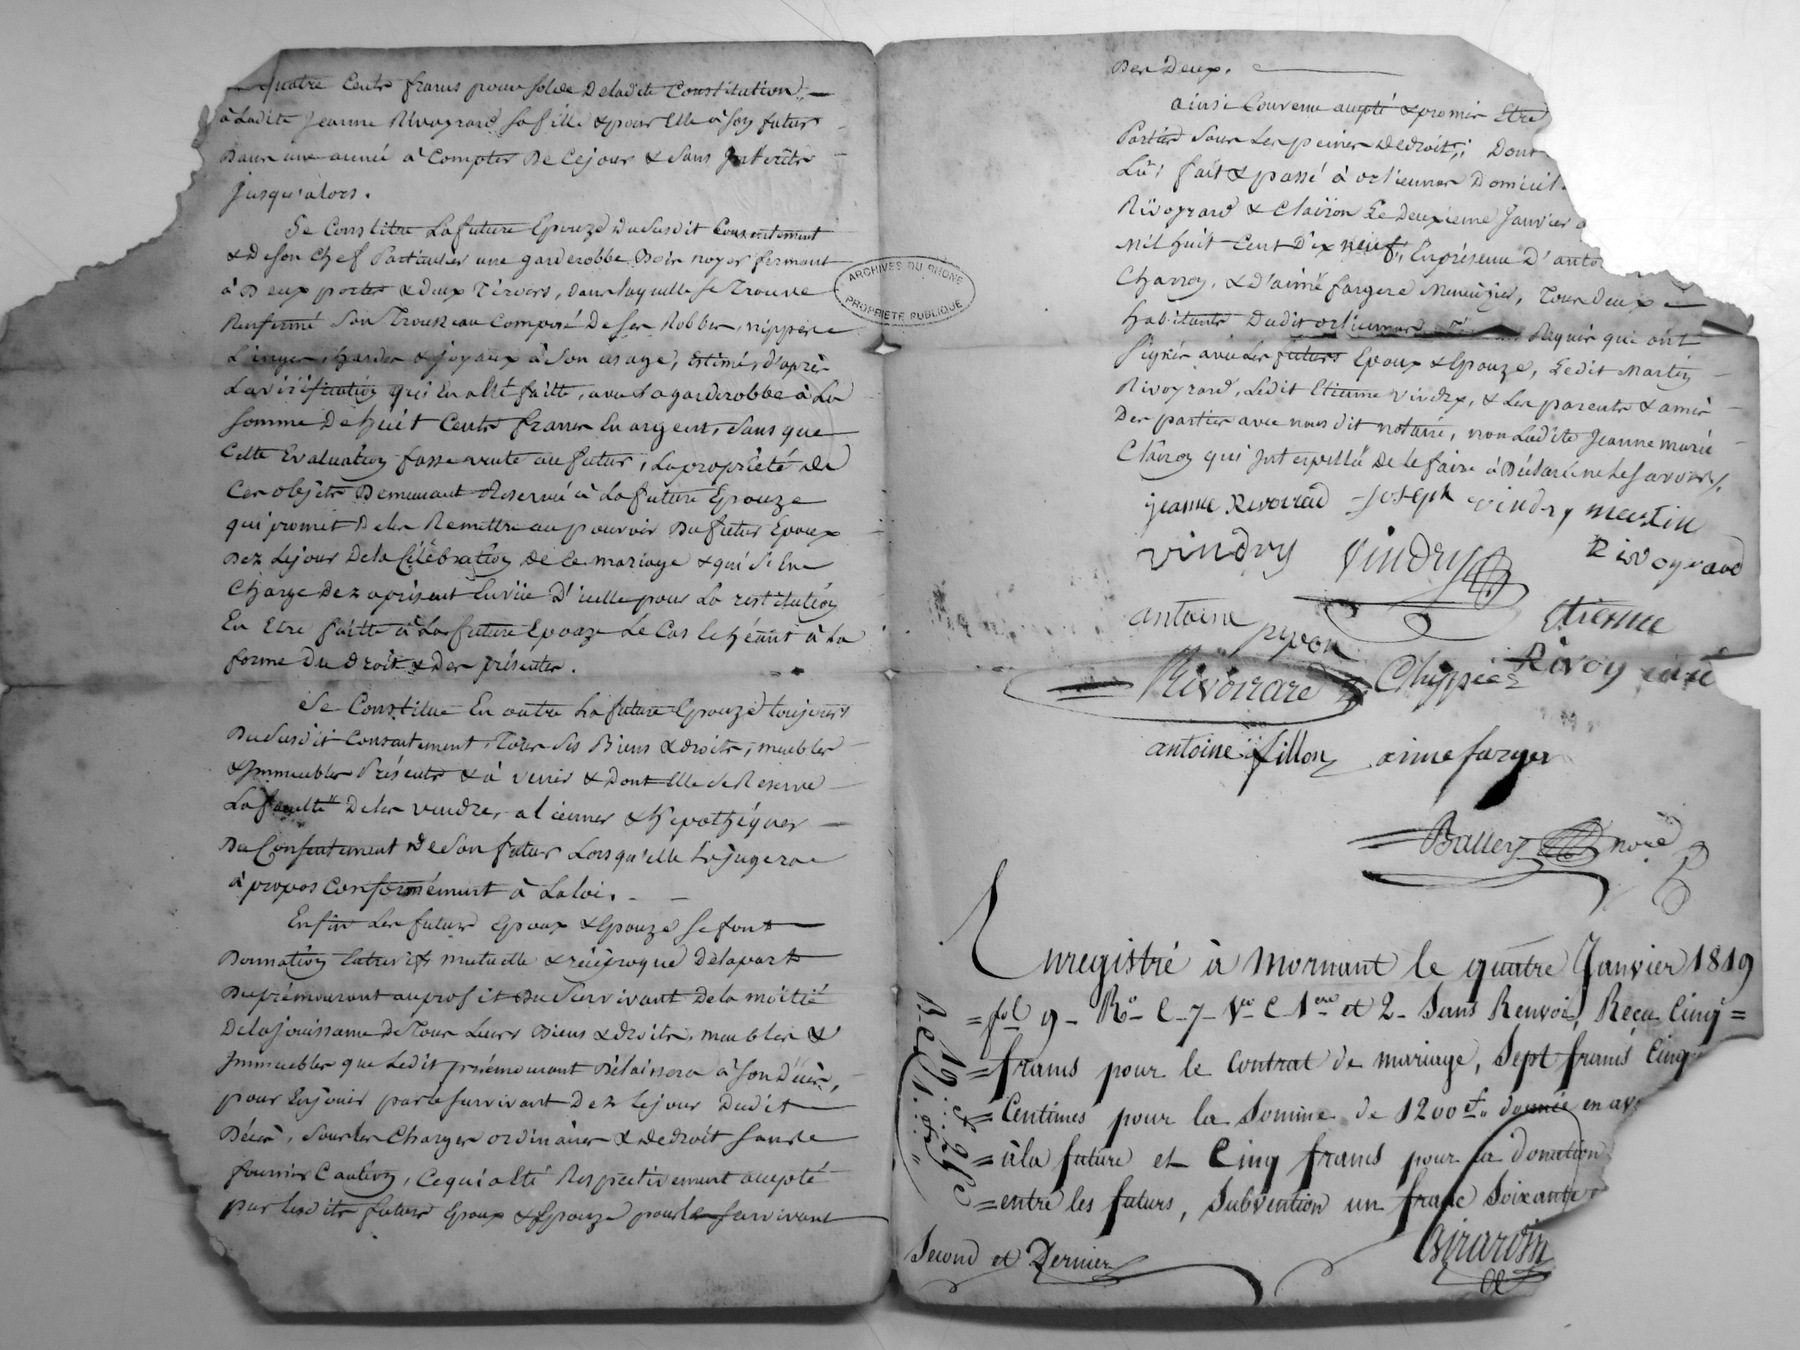 quatre Cents francs pour solde Deladite Constitution,
à Ladite Jeanne Rivoyrard sa fille & pour Elle à son futur
Dans une année à Compter De Cejour & Sans Intérêts
jusqu'alors.
Se Constitue La future Epouze Dususdit Consentement
& De son Chef Particulier une garderobbe Bois noyer fermant
à Deux portes & deux Tiroirs, dans laquelle se Trouve
Renfermé Son Trousseau Composé De ses Robbes, nippes
Linges, hardes & joyaux à Son usage, Estimés, d'après
La vérification qui En a Eté faitte, avec La garderobbe à La
somme De huit Cents francs En argent, sans que
Cette Evaluation fasse vente au futur, La propriété de
Ces objets Demeurant Reservée à La future Epouze
qui promet De les Remettre au pouvoir Du futur Epoux
Dez Lejour De la Célébration de Ce mariage & qui s'En
Charge Dez àprésent Envüe D'icelle pour La restitution
En Etre faitte à La future Epouze Le Cas Echéant à La
forme Du droit & Des présentes.
Se Constitue En outre La future Epouze toujours
Dususdit Consentement, Tous Ses Biens & droits, meubles
& Immeubles Présents & à venir & Dont Elle se Reserve
La faculté De les vendre, aliéner & hipothéquer
Du Consentement de Son futur Lorsqu'elle Lejugera
à propos Conformément à Laloi.
Enfin Les futurs Epoux & Epouze se font
Donnation Entrevifs mutuelle & réciproque Delapart
Duprémourant auprofit Du Survivant Dela moitié
Delajouissance De Tous Leurs Biens & droits, meubles &
Immeubles que Ledit prémourant Délaissera à Son Décès,
pour Enjouir par le survivant Dez Lejour Dudit
Décès, sous les Charges ordinaires & de droit sans
fournir Caution, Cequi a Eté Respectivement accepté
par lesdits futurs Epoux & Epouze pour le survivant
ARCHIVES DU RHONE
PROPRIÉTÉ PUBLIQUE
Des Deux.
ainsi Convenu accepté & promis Etre
Parties Sous Les peines Dedroit; Dont
Lû, fait & passé à orlienas Domicil
Rivoyrard & Clairon Le Deuxieme Janvier
Mil huit Cent Dix neuf, En présence D'anto
& D'aimé fargere Menuizier, Tous deux
habitants Dudit orlienas Requis qui ont
signés avec Les futurs Epoux & Epouze, Ledit Martin
Rivoyrard, Ledit Etienne Vindry, & Les parents & amis
Des parties avec nous dit notaire, non Ladite Jeanne marie
Clairon qui Interpellée De le faire à Déclaré ne Le savoir.
jeanne Rivoirard Joseph vindry Martin
vindry Vindry Rivoyrard
antoine pyvon Etienne
Rivoirard Rivoyrard
antoine fillon aime farger
Ballay
Enregistré à Mornant le quatre Janvier 1819
fol 9 Ro C 7 Vo C 1ere et 2 Sans Renvoi, Recu Cinq
francs pour le Contrat de mariage, Sept francs Cinq
Centimes pour la Somme de 1200 f donnée en av
à la future et Cinq francs pour la donation
entre les futurs, Subvention un franc Soixante
Girardin
19. f 25 c
Second et Dernier